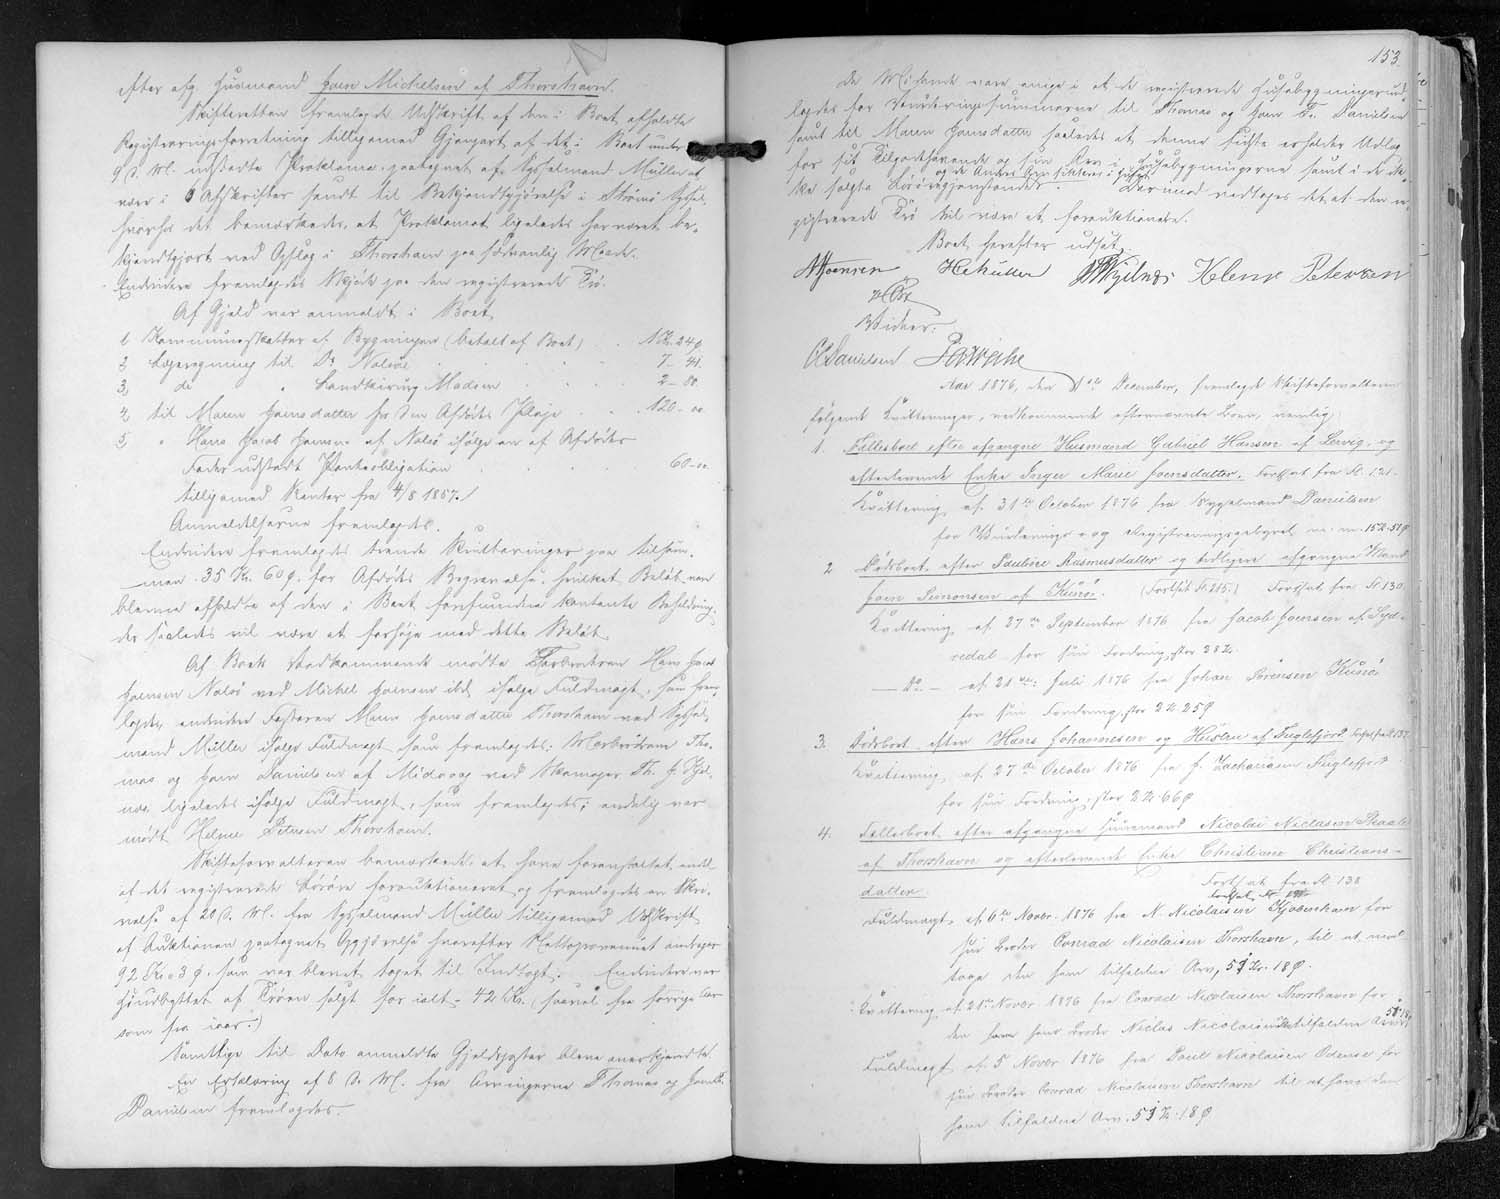 efter afg. Huusmand Joen Michelsen af Thorshavn.
Skifteretten fremlagde Udskrift af den i Boet afholdte
Registreringsforretning tilligemed Gjenpart af det i Boet under
9 d. M. udstedte Proklama paategnet af Sysselmand Müller at
være i 6 Afskrifter sendt til Bekjendtgjørelse i Strømø Syssel,
hvorhos det bemærkedes, at Proklamat ligeledes har været be-
kjendtgjort ved Opslag i Thorshavn paa sædvanlig Maade.
Endvidere fremlagdes Skjøde paa den registrerede Trö.
Af Gjeld var anmeldt i Boet
1 Kommuneskatter af Bygningen (betalt af Boet) . . 1 Kr. 24 ø
2 Lægeregning til Dr Nolsøe . . . . 7 - 41
3, do " Landkirurg Madsen . . . . 2 - 80.
4 til Maren Joensdatter for den Afdødes Pleje . . 120 - 00
5, " Hans Jacob Joensen af Nolsö ifølge en af Afdødes
Fader udstedt Panteobligation . . . . 60 - 00
tilligemed Renter fra 4/8 1857.
Anmeldelserne fremlagdes.
Endvidere fremlagdes trende Kvitteringer paa tilsam-
men 35 Kr. 60 ø. for Afdødes Begravelse, hvilket Beløb var
blevne afholdte af den i Boet forefundne kontante Beholdning,
der saaledes vil være at forhøje med dette Beløb.
Af Boet Vedkommende mødte Farbroderen Hans Jacob
Joensen Nolsö ved Michel Joensen ibd. ifølge Fuldmagt, som frem-
lagdes, endvidere Fasteren Maren Joensdatter Thorshavn ved Syssel-
mand Müller ifølge Fuldmagt, som fremlagdes; Morbrødrene Tho-
mas og Joen Danielsen af Midvaag ved Skomager Th. J. Kjel-
næs ligeledes ifølge Fuldmagt, som fremlagdes; endelig var
mødt Helene Petersen Thorshavn.
Skifteforvalteren bemærkede, at have foranstaltet
at det registrerede Løsøre forauktioneret og fremlagdes en Skri-
velse af 20 d. M. fra Sysselmand Müller tilligemed Udskrift
af Auktionen paategnet Opgjørelse hvorefter Nettoprovenuet andrager
92 Kr. 3 ø. som var blevet taget til Indtægt. Endvidere var
Höudbyttet af Tröen solgt for ialt - 42 Kr. (saavel fra forrige Aar
som fra iaar.)
Samtlige til Dato anmeldte Gjeldsposter bleve anerkjendte.
En Erklæring af 8 d. M. fra Arvingerne Thomas og Joen
Danielsen fremlagdes.
153.
De Mødende vare enige i at de registrerede Huusbygninger ud-
lagdes for Vurderingssummerne til Thomas og Joen D. Danielsen
samt til Maren Joensdatter saaledes at denne sidste erholder Udlæg
for sit Tilgodehavende og sin Arv i Huusbygningerne samt i de ik-
og de Andres Arv sikkres i Huset
ke solgte Løsøregjenstande. Dernæst vedtoges det at den re-
gistrerede Trö vil være at forauktionere.
Boet herefter udsat.
Joensen HCMüller Kjelnæs Helene Petersen
Vidner:
Danielsen
Aar 1876, den 1ste December, fremlagde Skifteforvalteren
følgende Kvitteringer, vedkommende efternævnte Boer, nemlig:
1. Fællesboet efter afgangne Huusmand Gabriel Hansen af Lervig, og
efterlevende Enke Inger Marie Joensdatter. Fortsat fra fl. 121.
Kvittering af 31te October 1876 fra Sysselmand Danielsen
for Vurderings- og Registreringsgebyret m. m. 15 Kr. 58 ø
2 Dødsboet efter Pauline Rasmusdatter og tidligere afgangne Mand
Joen Simonsen af Kunö. (Fortsat fl. 215.) Fortsat fra fl. 130.
Kvittering af 27de September 1876 fra Jacob Joensen af Syd-
redal for sin Fordring, stor 28 Kr.
— Do. — af 21de Juli 1876 fra Johan Sørensen Kunö
for sin Fordring, stor 2 Kr. 25 ø
3. Dødsboet efter Hans Johannesen og Hustru af Fuglefjord. Fortsat fra fl. 137.
Kvittering af 27de October 1876 fra J. Zachariasen Fuglefjord
for sin Fordring, stor 2 Kr. 66 ø
4. Fællesboet efter afgangne Huusmand Nicolai Niclasen Skaale
af Thorshavn og efterlevende Enke Christiane Christians-
datter. Fortsat fra fl 138
Fuldmagt af 6te Novbr. 1876 fra N. Nicolaisen Kjøbenhavn for
sin Broder Conrad Nicolaisen Thorshavn, til at mod-
tage den ham tilfaldne Arv, 51 Kr. 18 ø.
Kvittering af 21de Novbr 1876 fra Conrad Nicolaisen Thorshavn for
den hans Broder Niclas Nicolaisen tilfaldne Arv 51 18
Fuldmagt af 5 Novbr 1876 fra Poul Nicolaisen Odense for
sin Broder Conrad Nicolaisen Thorshavn til at hæve den
ham tilfaldne Arv. 51 Kr. 18 ø